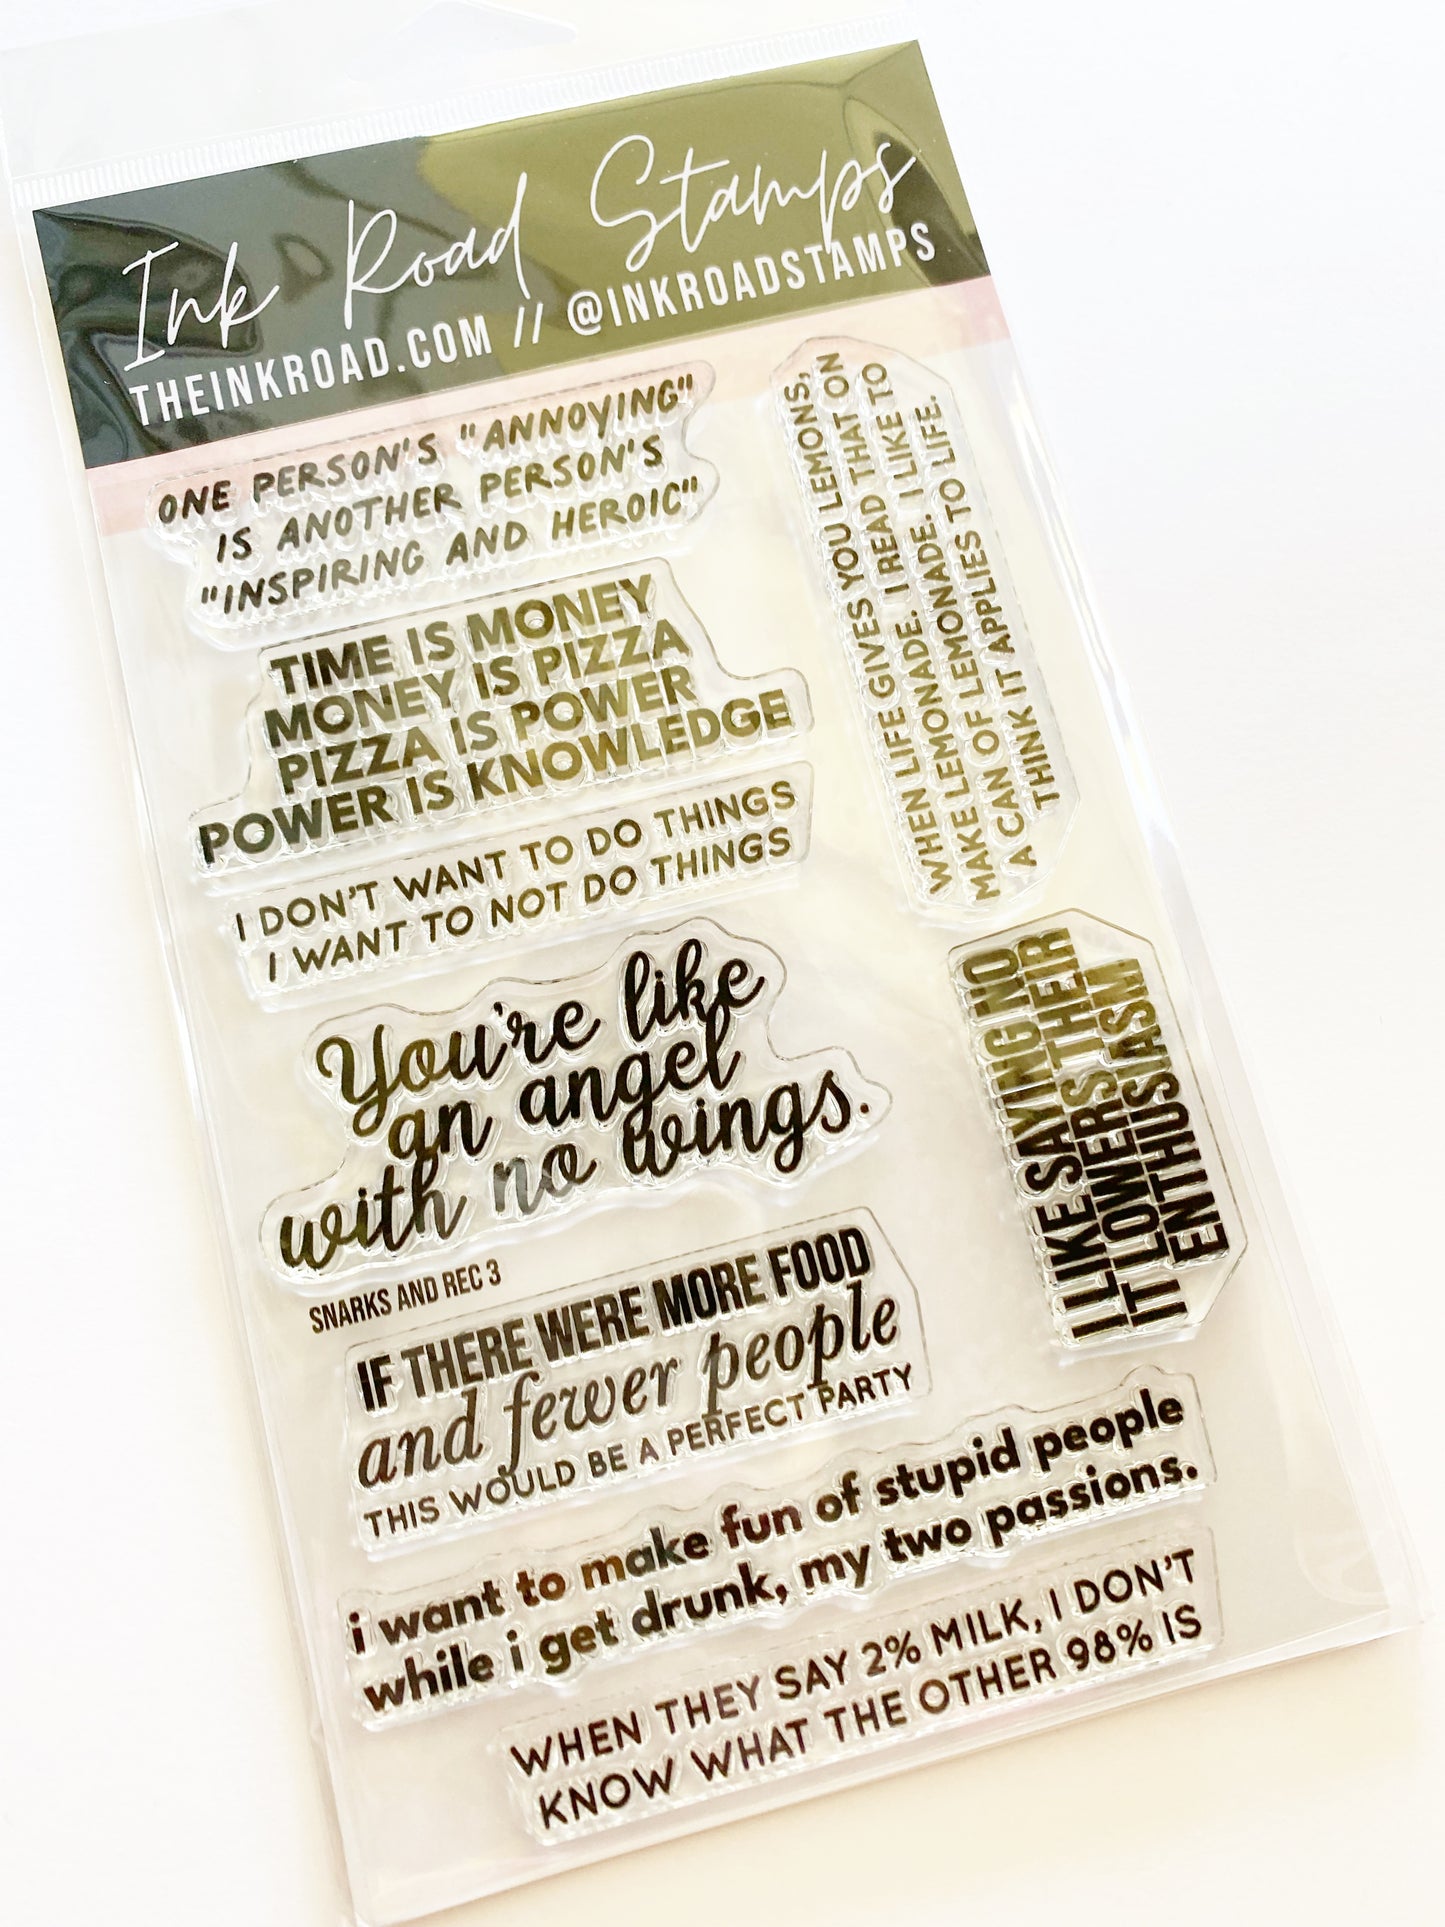 Ink Road Stamps
THEINKROAD.COM // @INKROADSTAMPS
ONE PERSON'S "ANNOYING"
IS ANOTHER PERSON'S
"INSPIRING AND HEROIC"
TIME IS MONEY
MONEY IS PIZZA
PIZZA IS POWER
POWER IS KNOWLEDGE
I DON'T WANT TO DO THINGS
I WANT TO NOT DO THINGS
You're like
an angel
with no wings.
SNARKS AND REC 3
IF THERE WERE MORE FOOD
and fewer people
THIS WOULD BE A PERFECT PARTY
i want to make fun of stupid people
while i get drunk, my two passions.
WHEN THEY SAY 2% MILK, I DON'T
KNOW WHAT THE OTHER 98% IS
WHEN LIFE GIVES YOU LEMONS,
MAKE LEMONADE. I READ THAT ON
A CAN OF LEMONADE. I LIKE TO
THINK IT APPLIES TO LIFE.
I LIKE SAYING NO
IT LOWERS THEIR
ENTHUSIASM